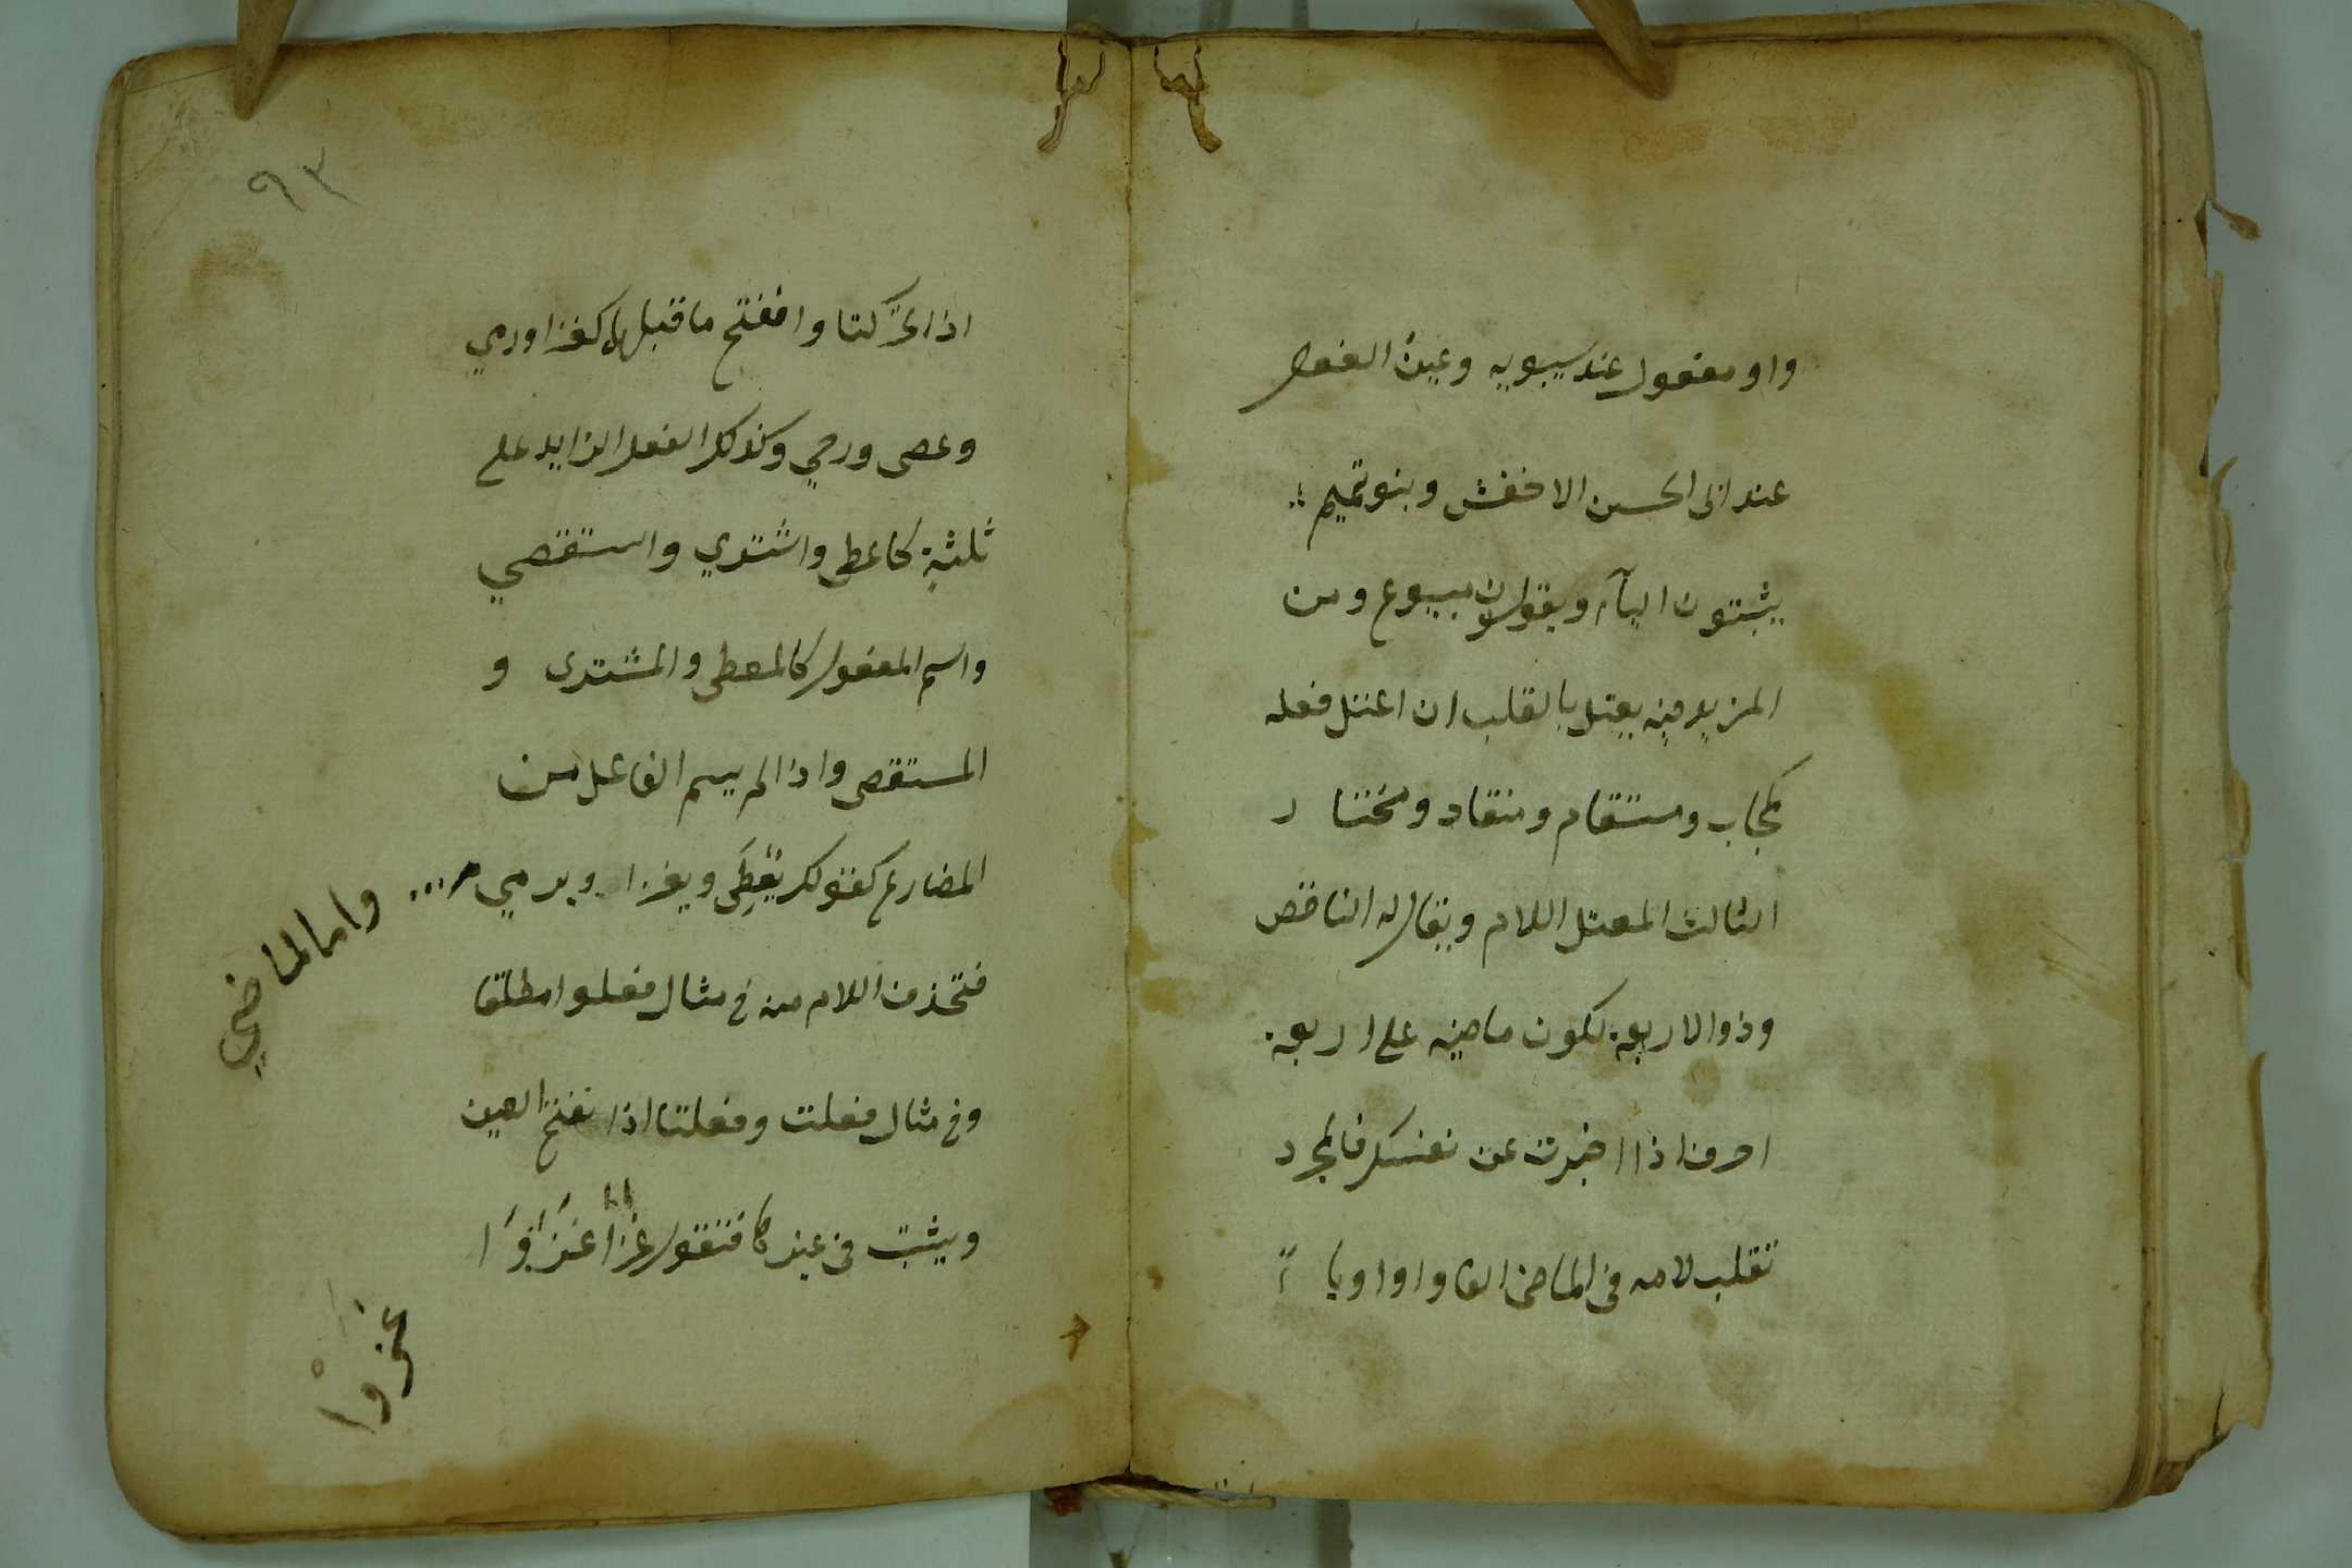 واو مفعول عند سيبويه وعينُ الفعل
عند ابى الحسن الاخفش وبنو تميم
يثبتون اليآء ويقولون مبيوع ومن
المزيد فيه يعتل بالقلب ان اعتل فعله
كمجاب ومستقام ومنقاد ومختار
الثالث المعتل اللام ويقال له الناقص
وذو الاربعة لكون ماضيه على اربعة
احرف اذا اخبرت عن نفسك فالمجرد
تقلب لامه فى الماضى الفا واوا ويا
٩٣
اذا تحركتا وانفتح ما قبلها كغزا ورمي
وعصى ورحي وكذلك الفعل الزايد على
ثلثة كاعطى واشتري واستقصي
واسم المفعول كالمعطى والمشترى و
المستقصى واذا لم يسم الفاعل من
المضارع كقولك يُعطَى ويغزا ويرمي
واما الماضي
فتحذف اللام منه في مثال فعلوا مطلقا
وفي مثال فعلت وفعلتا اذا نفتح العين
ويثبت في غيرها فتقول غزا غَزَوَا
غزوْا